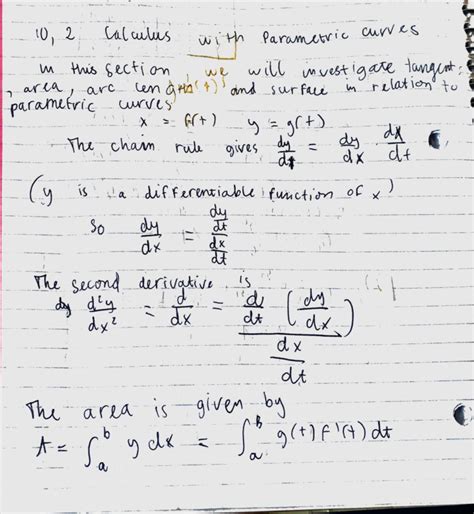 10, 2 Calculus with Parametric curves
in this section, we will investigate tangent,
, area, arc length and surface in relation to
parametric curves
x = f(t) y = g(t)
The chain rule gives dy/dt = dy/dx · dx/dt
(y is a differentiable function of x)
So dy/dx = (dy/dt)/(dx/dt)
The second derivative is
d²y/dx² = d/dx = (d/dt (dy/dx))/(dx/dt)
The area is given by
A = ∫_a^b y dx = ∫_a^B g(t) f'(t) dt